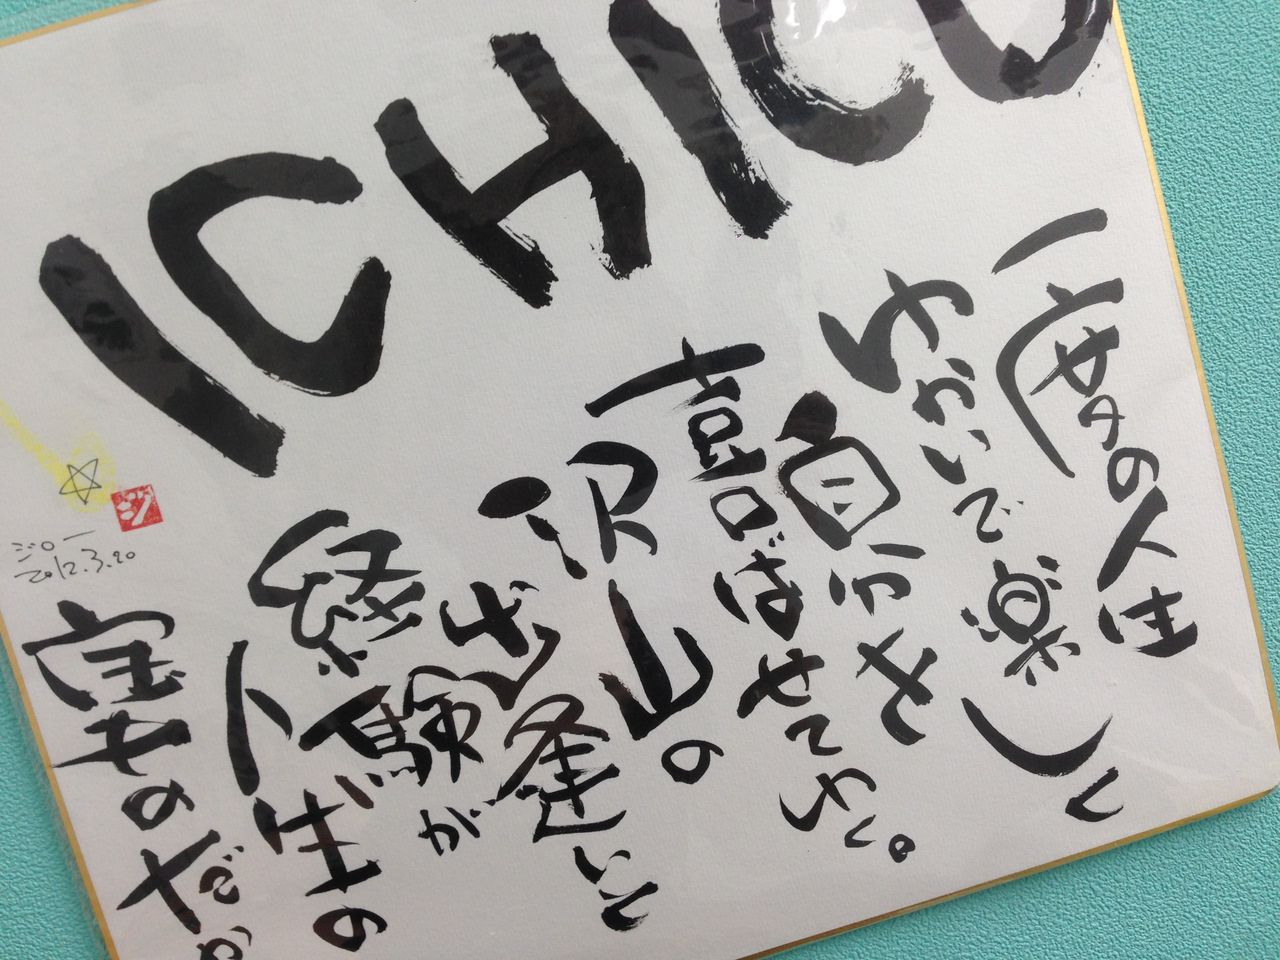 ICHICO
一度の人生
ゆかいで楽しく
自分を
喜ばせてゆく。
沢山の
出逢いと
経験が
人生の
宝ものだか
ジ
ジロー
2012.3.20